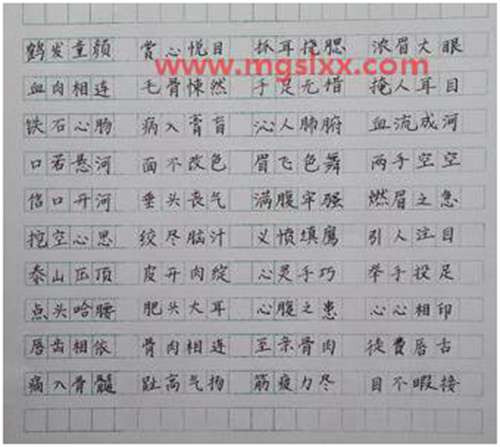 鹤发童颜 赏心悦目 抓耳挠腮 浓眉大眼
www.mgslxx.com
血肉相连 毛骨悚然 手足无措 掩人耳目
铁石心肠 病入膏肓 沁人肺腑 血流成河
口若悬河 面不改色 眉飞色舞 两手空空
信口开河 垂头丧气 满腹牢骚 燃眉之急
挖空心思 绞尽脑汁 义愤填膺 引人注目
泰山压顶 皮开肉绽 心灵手巧 举手投足
点头哈腰 肥头大耳 心腹之患 心心相印
唇齿相依 骨肉相连 至亲骨肉 徒费唇舌
痛入骨髓 趾高气扬 筋疲力尽 目不暇接